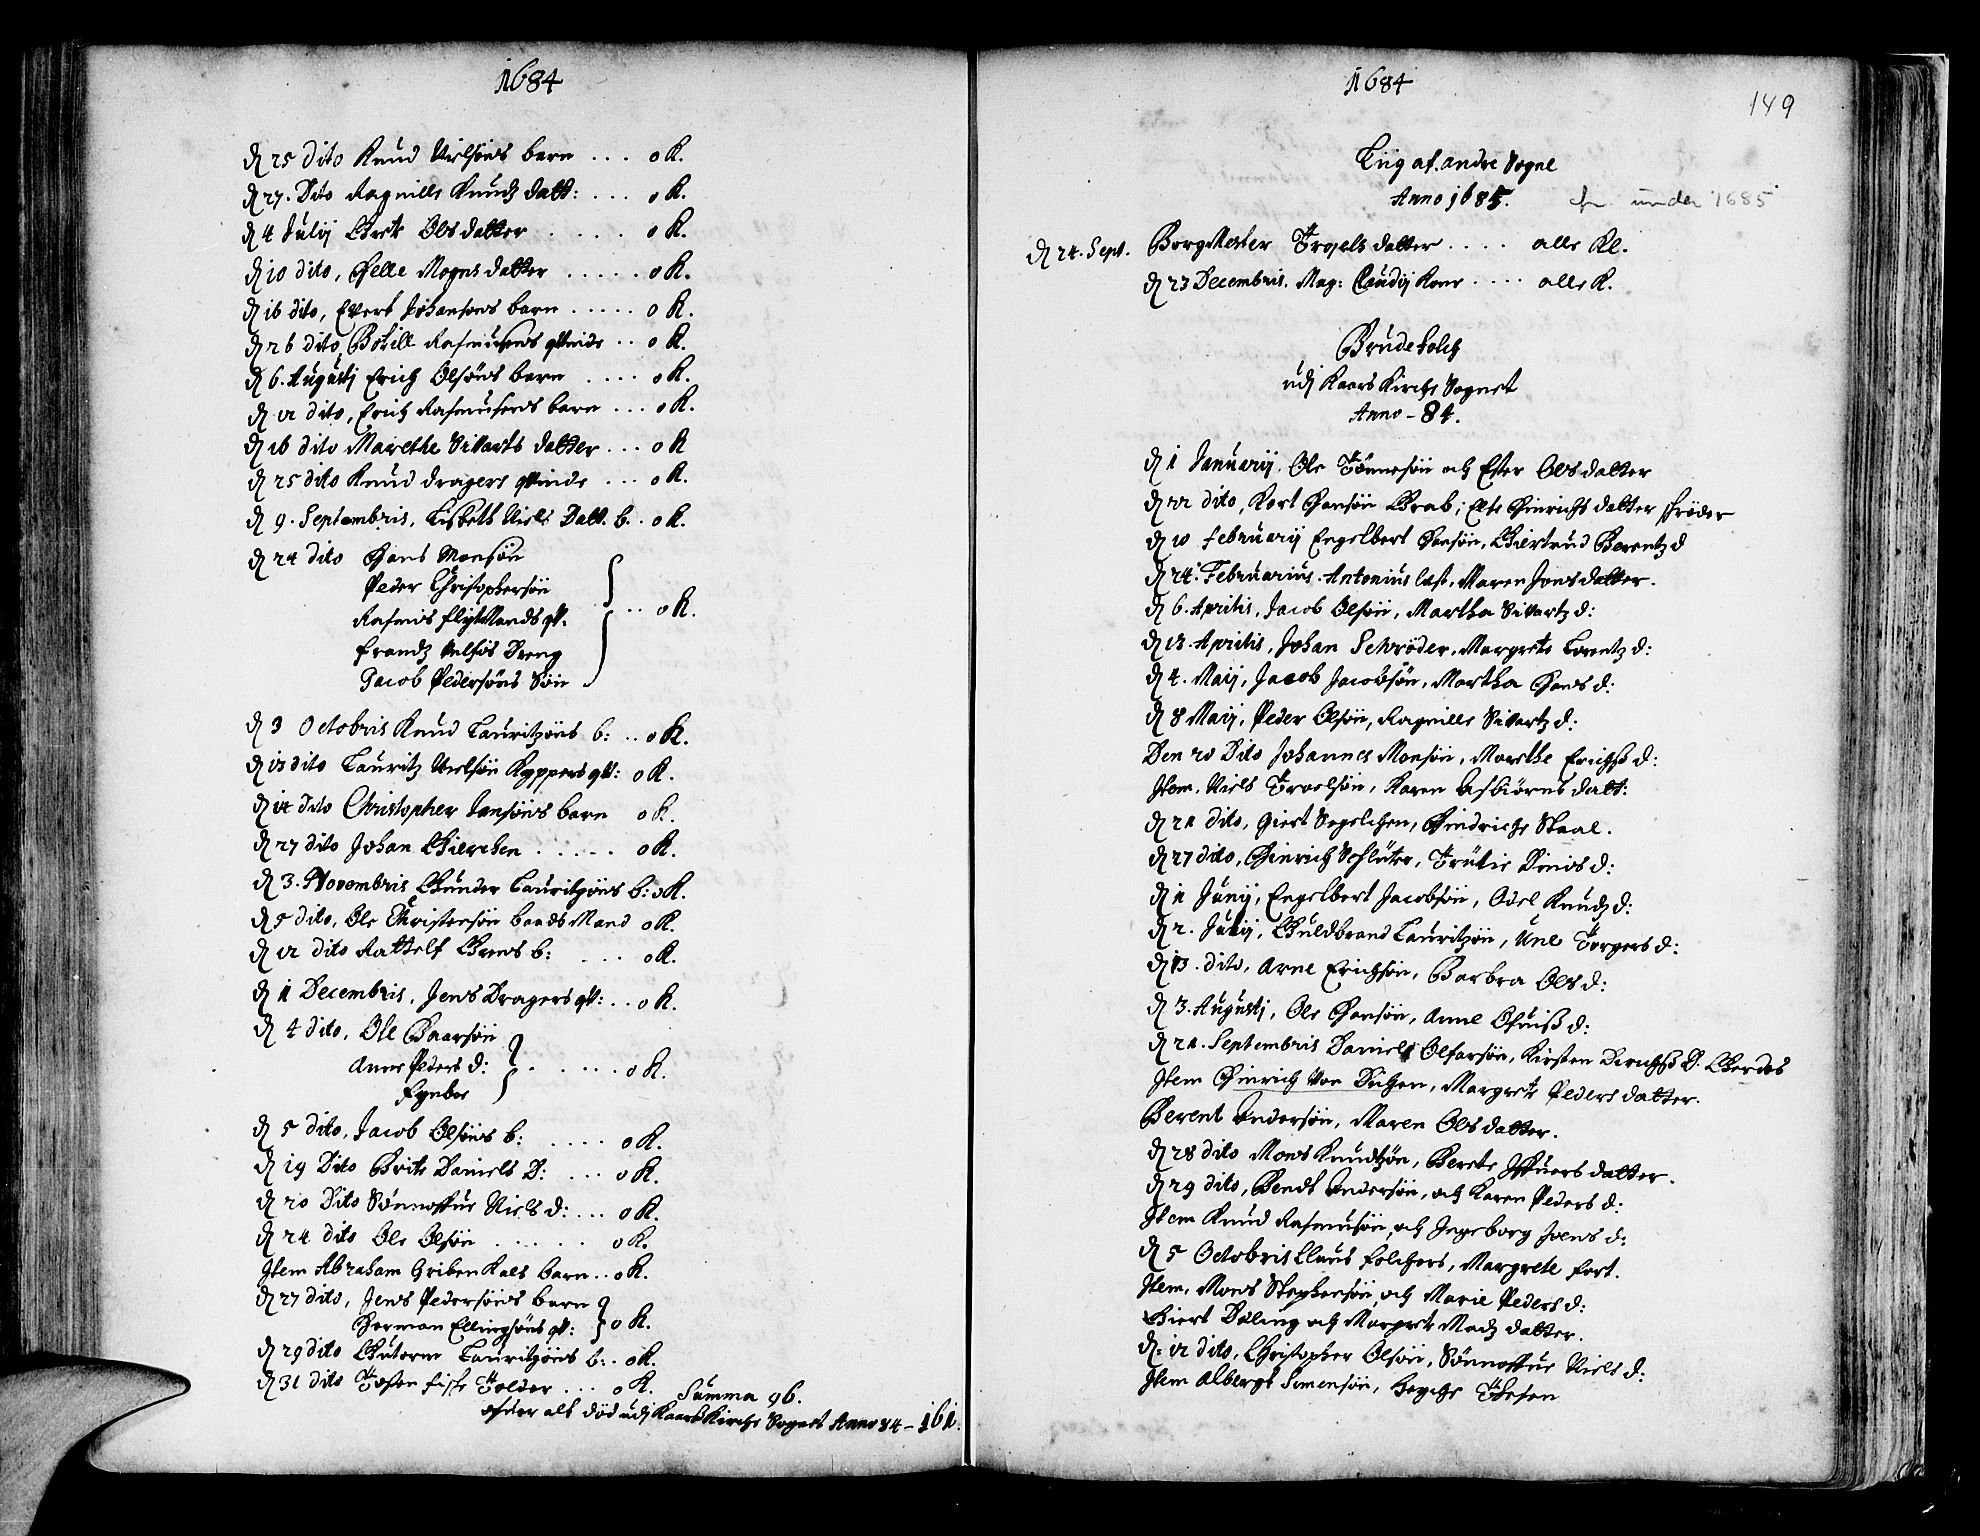 1684
d 25 dito Knud Nielsøns barn ... o K.
d 27. Dito Ragnille Knudz datt: ... o K.
d 4 Julij Gret Olsdatter ..... o K.
d 10 dito, Pelle Mogns datter ..... o K.
d 16 dito, Evert Johansøns barn ..... o K.
d 26 dito, Botill Rasmusens qvinde .. o K.
d 6. Augustj Erich Olsøns barn .... o K.
d 12 dito, Erich Rasmusens barn ... o K.
d 16 dito Marethe Sivarts datter ... o K
d 25 dito Knud dragers qvinde ... o K.
d 9. Septembris, Lisbeth Niels Datt. b. . o K.
d 24 dito Hans Monsøn
Peder Christophersøn
Rasmus qv. .. o K.
Frandz Nielsøs Dreng
Jacob Pedersøns Søn
d 3 Octobris Knud Lauritzøns b: .. o K.
d 13 dito Lauritz Nielsøn Kyppers qv: o K.
d 14 dito Christopher Jensøns barn o K.
d 27 dito Johan ..... o K.
d 3. Novembris Gunder Lauritzøns b: o K.
d 5 dito, Ole Christensøn baads Mand o K.
d 12 dito b: ... o K.
d 1 Decembris, Jens Dragers qv: .. o K.
d 4 dito, Ole Baarsøn
Anne Peders d: ...... o K.
Fynboe
d 5 dito, Jacob Olsøns b: .... o K.
d 19 Dito Brite Daniels D: ... o K.
d 20 Dito Sønnoffue Niels d: ... o K.
d 24 dito Ole Olsøn ...... o K.
Item Abraham Gribenkals barn .. o K.
d 27 dito, Jens Pedersøns barn
Herman Ellingsøns qv: o K.
d 29 dito Gutorm Lauritzøns b: . o K.
d 31 dito fiske Tolder ... o K.
Summa 96.
ofuer alt død udj Kaars Kirche Sognet Anno 84 – 161.
1684
149
Liig af andre Sogne
Anno 1685. under 1685
d 24. Sept. BorgMester Troels datter .... alle Kl.
d 23 Decembris. Mag: Claudij Kone .... alle K.
Brudefolch
udj Kaars Kirche Sognet
Anno – 84.
d 1 Januarij, Ole Tønnesøn och Ester Olsdatter
d 22 dito, Kort Hansøn Grab; Else Hinrichs datter schrøder
d 10 februarij Engelbert Hansøn, Giertrud Berentz d
d 24. Februarius. Antonius last, Maren Jonsdatter.
d 6. Aprilis, Jacob Olsøn, Martha Sivartz d:
d 13. Aprilis, Johan Schrøder, Margrete Lorentz d:
d 4. Maij, Jacob Jacobsøn, Martha Hans d:
d 8 Maij, Peder Olsøn, Ragnille Sivartz d:
Den 20 Dito Johannes Monsøn, Marthe Erichs d:
Item, Niels Troelsøn, Karen Asbiørns datt:
d 21 dito, Giert Segelchen, Hindriche Staal.
d 27 dito, Hinrich Schlüter, Trütie Dinis d:
d 11 Junij, Engelbert Jacobsøn, Odel Knudz d:
d 2. Julij, Guldbrand Lauritzøn, Une Torgers d:
d 13. dito, Arne Erichsøn, Barbra Ols d:
d 3. Augustj, Ole Hansøn, Anne d:
d 21. Septembris Daniel Olfarsøn, Kirsten Dirichs D. Gerdes
Item Hinrich Von Düchen, Margrete Peders datter.
Berent Andersøn, Maren Olsdatter.
d 28 dito Mons Knudtzøn, Berete Iffuers datter.
d 29 dito, Bendt Andersøn, och Karen Peders d:
Item Knud Rasmusøn, och Ingeborg Joens d:
d 5 Octobris Claus folchers, Margrete fort.
Item, Mons Stephensøn, och Marie Peders d:
Giert Døling och Margrete Madz datter.
d: 12 dito, Christopher Olsøn, Sønnoffue Niels d:
Item Albergt Simensøn,